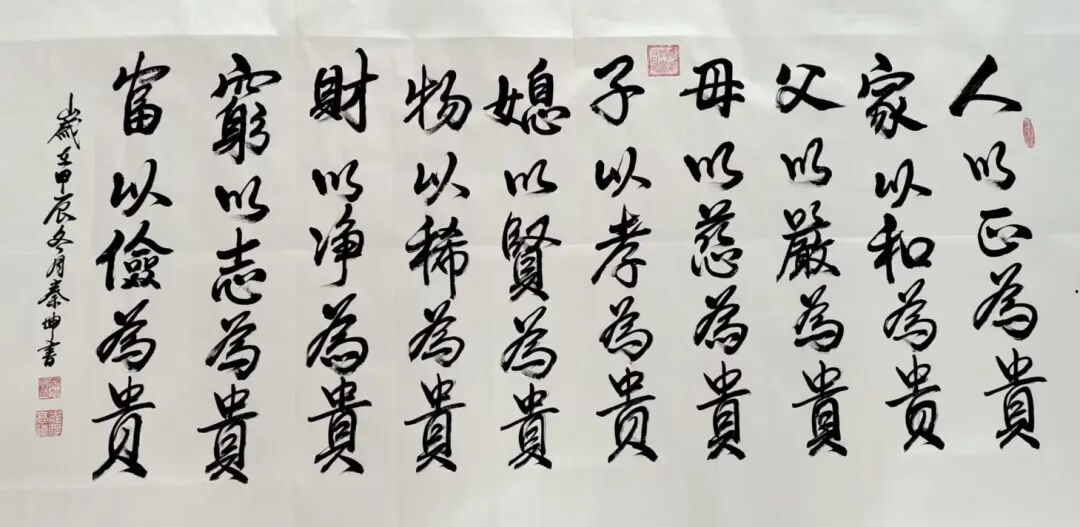 人以正為貴
家以和為貴
父以嚴為貴
母以慈為貴
子以孝為貴
媳以賢為貴
物以稀為貴
財以净為貴
窮以志為貴
富以儉為貴
歲在甲辰冬月秦坤書